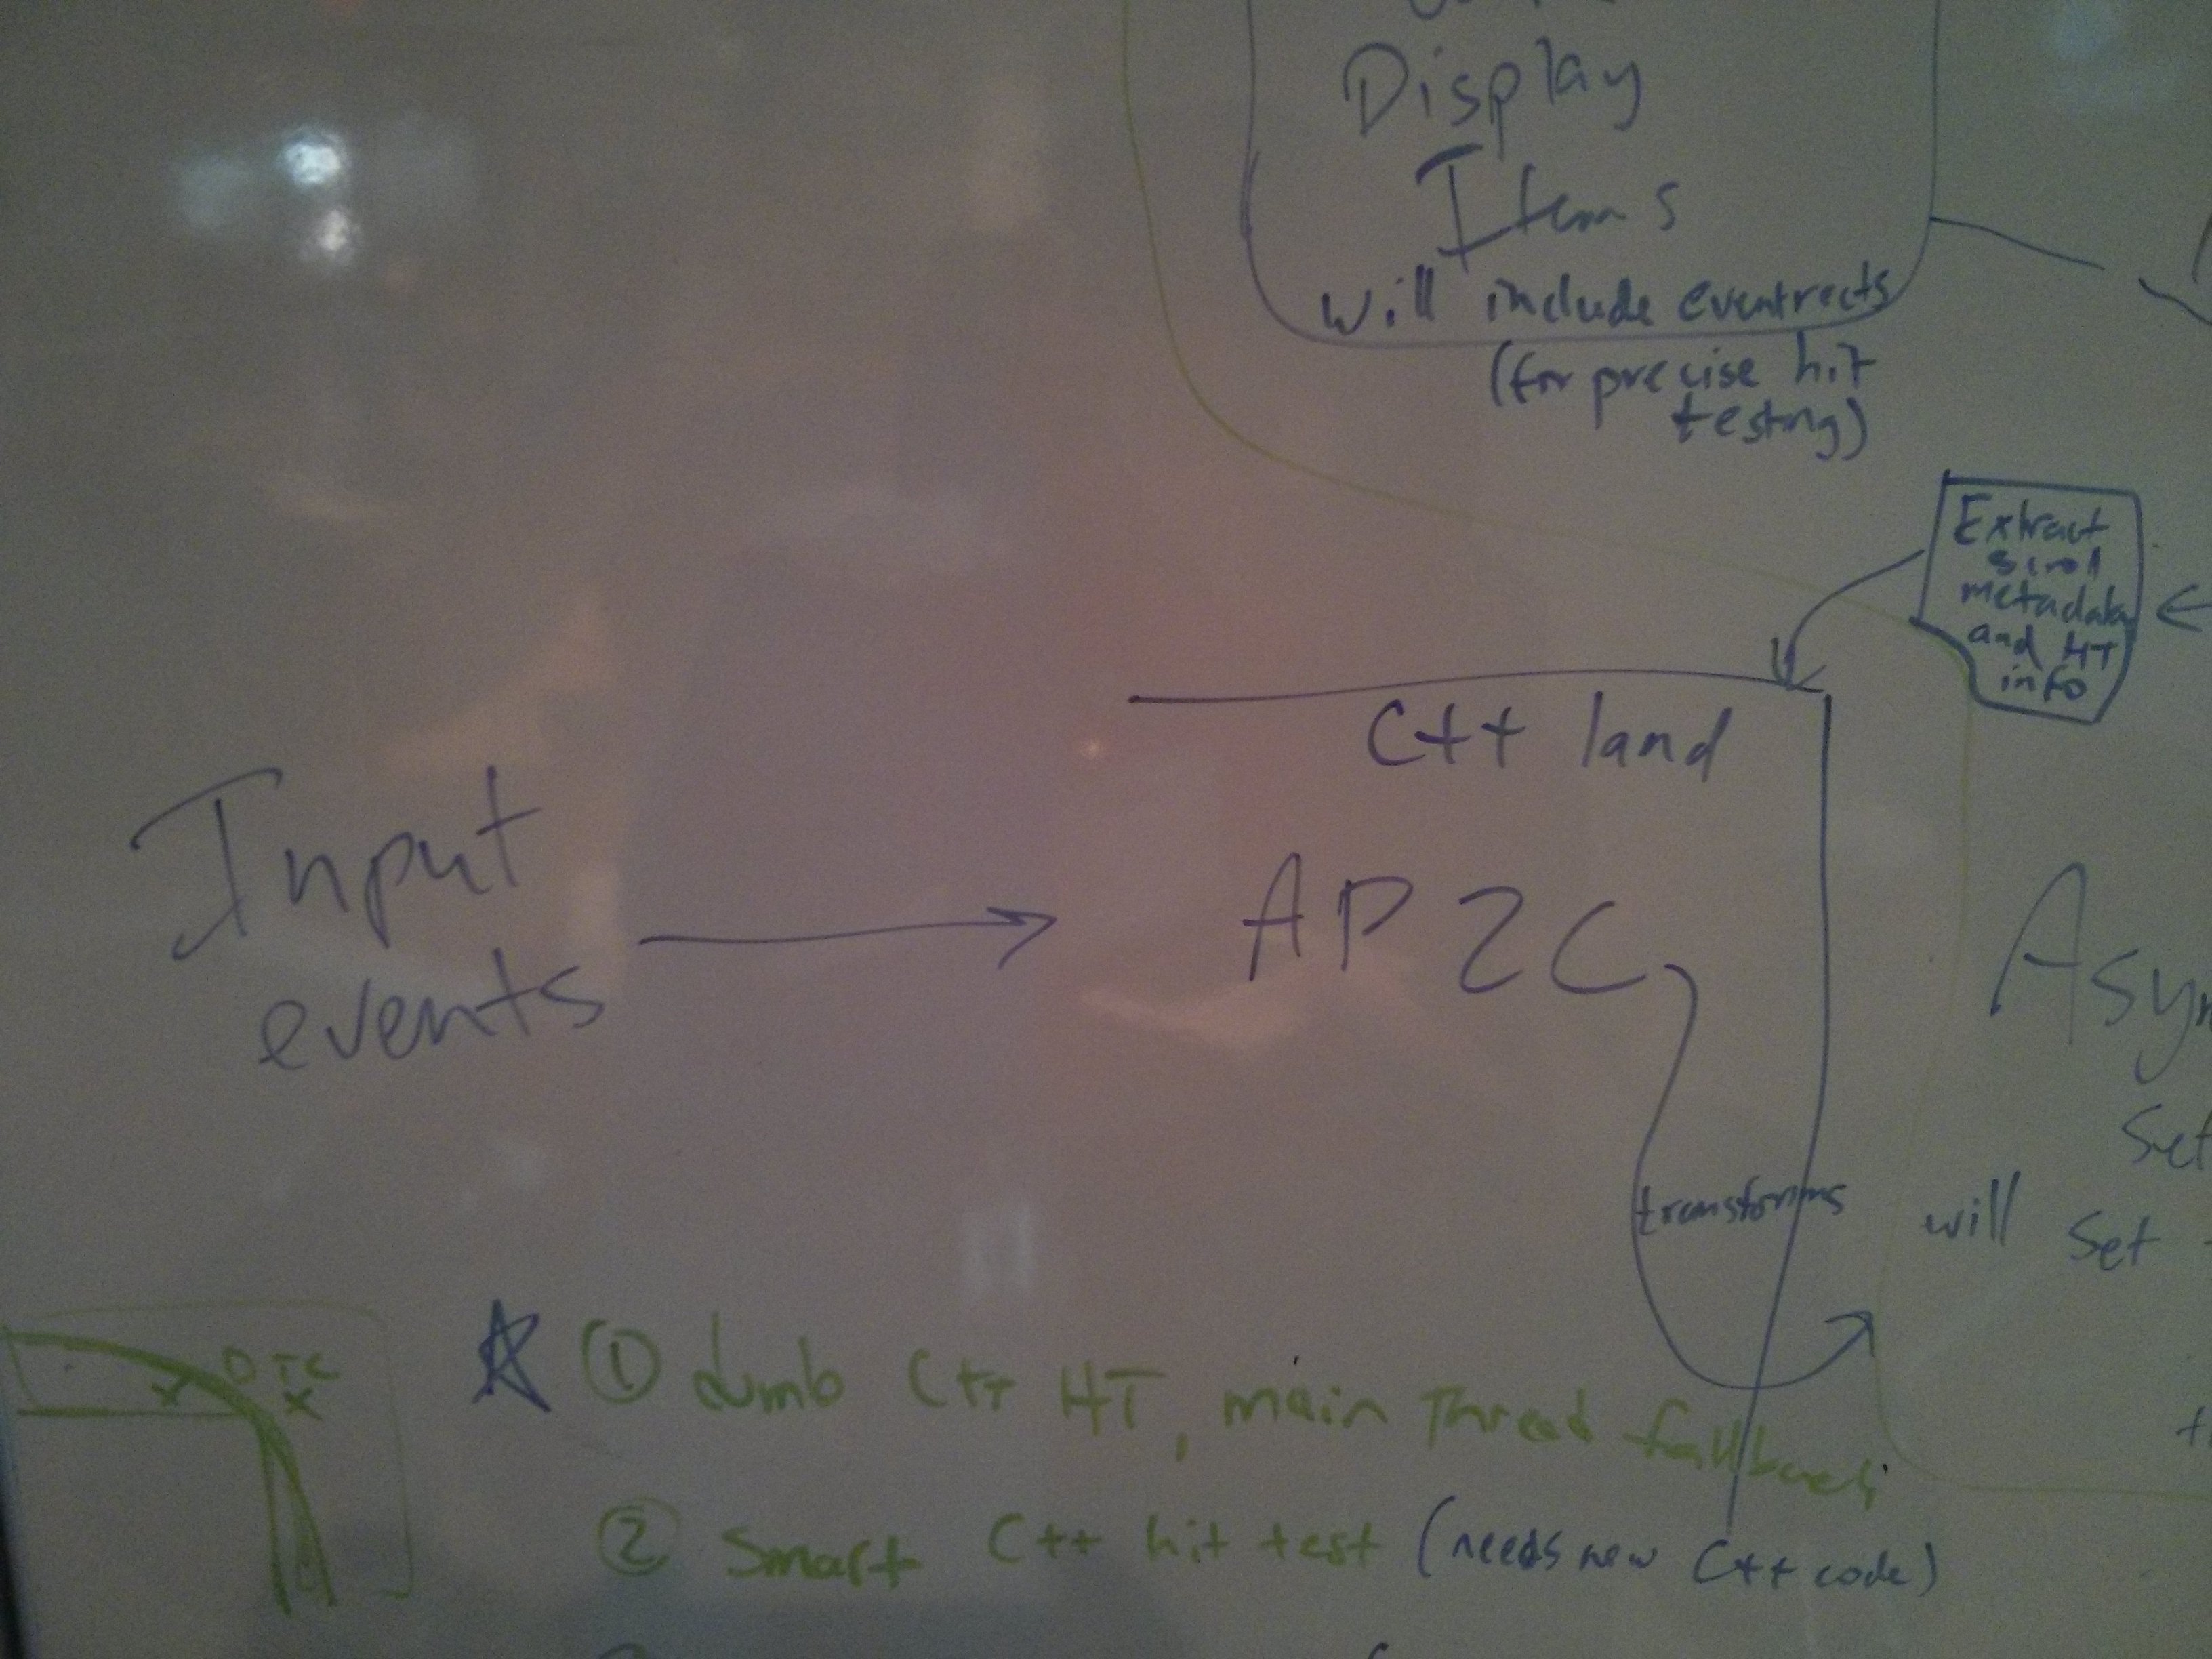 Display
Items
will include eventrects
(for precise hit
testing)
Extract
scroll
metadata
and HT
info
C++ land
Input
events
APZC
transforms
will set
① dumb C++ HT, main thread fallback
② Smart C++ hit test (needs new C++ code)